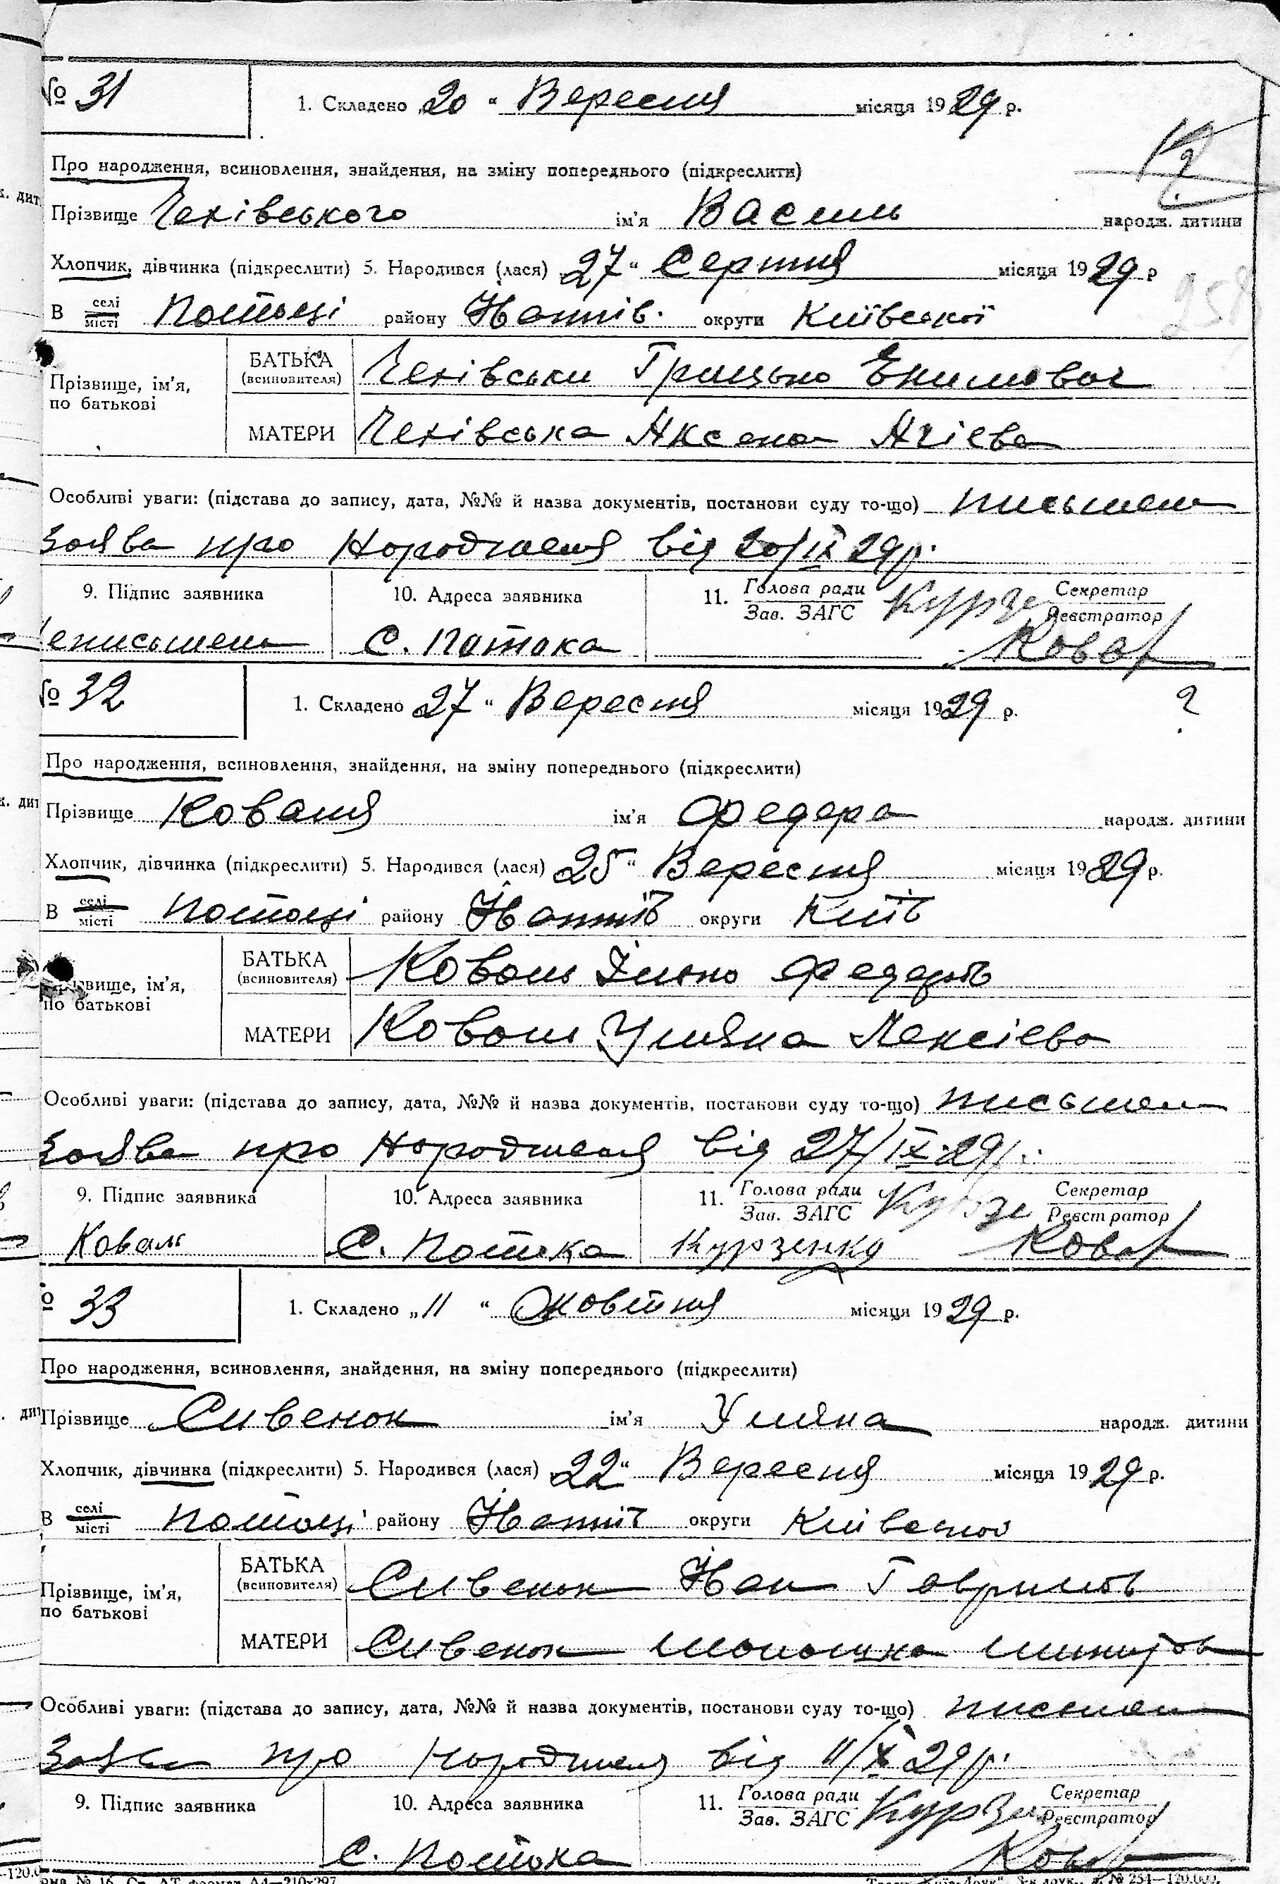 № 31
1. Складено „20“ Вересня місяця 1929 р.
Про народження, всиновлення, знайдення, на зміну попереднього (підкреслити)
Прізвище Чехівського ім'я Василь народж. дитини
Хлопчик, дівчинка (підкреслити) 5. Народився (лася) 27 “ Серпня місяця 1929 р
В селі місті Потоці району Кагарлів. округи Київської
Прізвище, ім'я, по батькові
БАТЬКА (всиновителя) Чехівськи Грицько
МАТЕРИ Чехівська Аксена
Особливі уваги: (підстава до запису, дата, №№ й назва документів, постанови суду то-що) письмен
Заява про народження від 20/IX 29р.
9. Підпис заявника 10. Адреса заявника 11. Голова ради Зав. ЗАГС Секретар Реєстратор
неписьмен с. Потока Ковал
№ 32
1. Складено 27 “ Вересня місяця 1929 р. ?
Про народження, всиновлення, знайдення, на зміну попереднього (підкреслити)
Прізвище Коваля ім'я Федера народж. дитини
Хлопчик, дівчинка (підкреслити) 5. Народився (лася) 25 “ Вересня місяця 1929 р.
В селі місті Потоці району округи Київ
Прізвище, ім'я, по батькові
БАТЬКА (всиновителя) Коваль Ілько Федорів
МАТЕРИ Коваль Уляна Лексієва
Особливі уваги: (підстава до запису, дата, №№ й назва документів, постанови суду то-що) письмен
Заява про народження від 27/IX 29р.
9. Підпис заявника 10. Адреса заявника 11. Голова ради Зав. ЗАГС Секретар Реєстратор
Коваль с. Потока Курзенко Ковал
№ 33
1. Складено „11“ Жовтня місяця 1929 р.
Про народження, всиновлення, знайдення, на зміну попереднього (підкреслити)
Прізвище Сивенок ім'я Уляна народж. дитини
Хлопчик, дівчинка (підкреслити) 5. Народився (лася) 22 “ Вересня місяця 1929 р.
В селі місті Потоці району округи Київської
Прізвище, ім'я, по батькові
БАТЬКА (всиновителя) Сивенок Гаврилів
МАТЕРИ Сивенок
Особливі уваги: (підстава до запису, дата, №№ й назва документів, постанови суду то-що) письмен
Заява про народження від 11/X 29р.
9. Підпис заявника 10. Адреса заявника 11. Голова ради Зав. ЗАГС Секретар Реєстратор
с. Потока Ковал